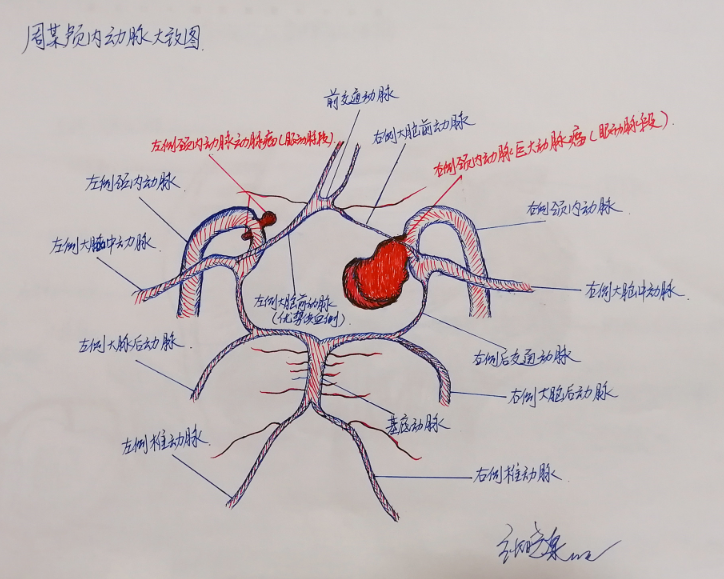 周某颅内动脉大致图
前交通动脉
左侧颈内动脉动脉瘤(眼动脉段)
右侧大脑前动脉
右侧颈内动脉巨大动脉瘤(眼动脉段)
左侧颈内动脉
右侧颈内动脉
左侧大脑中动脉
右侧大脑中动脉
左侧大脑前动脉
(优势供血侧)
左侧大脉后动脉
右侧后交通动脉
右侧大脑后动脉
基底动脉
左侧椎动脉
右侧椎动脉